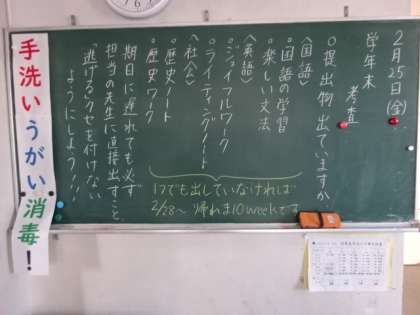 2月25日(金)
学年末 考査
○提出物出ていますか
〈国語〉
・国語の学習
・楽しい文法
〈英語〉
・ジョイフルワーク
・ライティングノート
〈社会〉
・歴史ノート
・歴史ワーク
期日に遅れても必ず
担当の先生に直接出すこと
「逃げるクセを付けない
ようにしよう!!」
1つでも出していなければ
2/28~ 帰れま10weekです
手洗いうがい消毒!